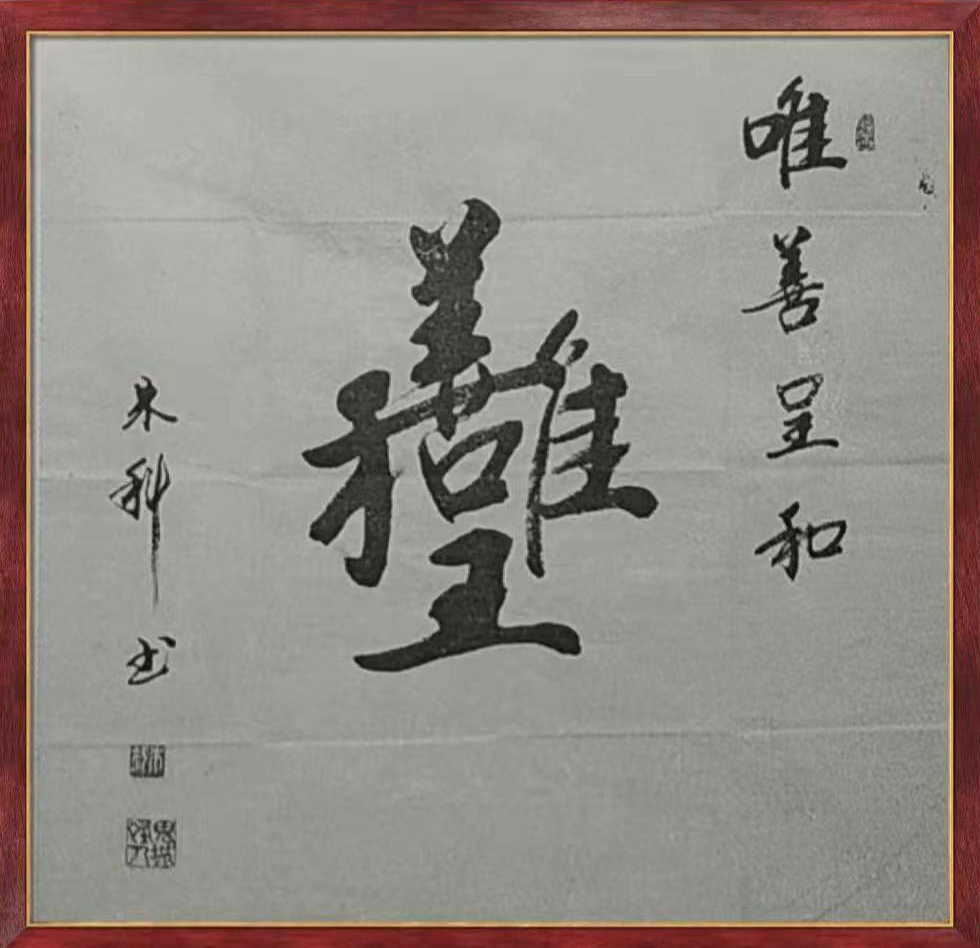 唯善呈和
朱科书